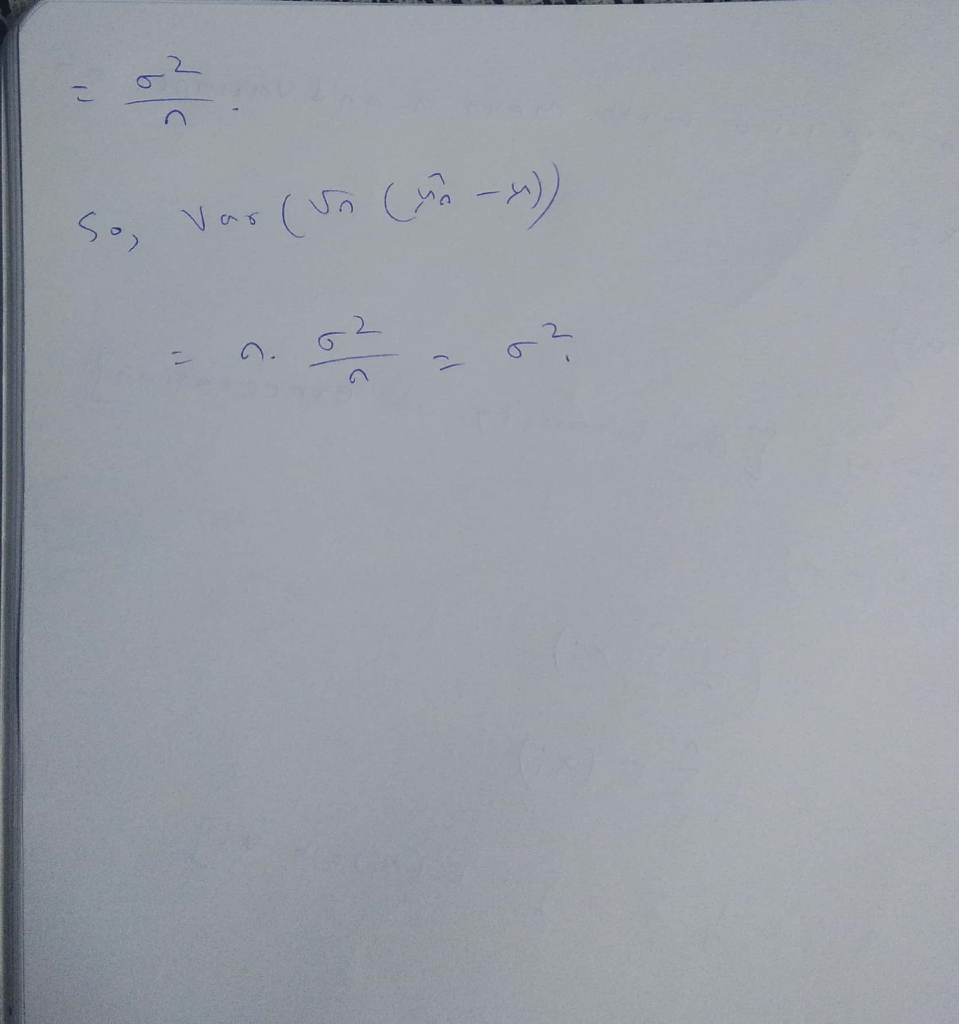 = σ²/n.
So, Var(√n (μ̂n − μ))
= n. σ²/n = σ².